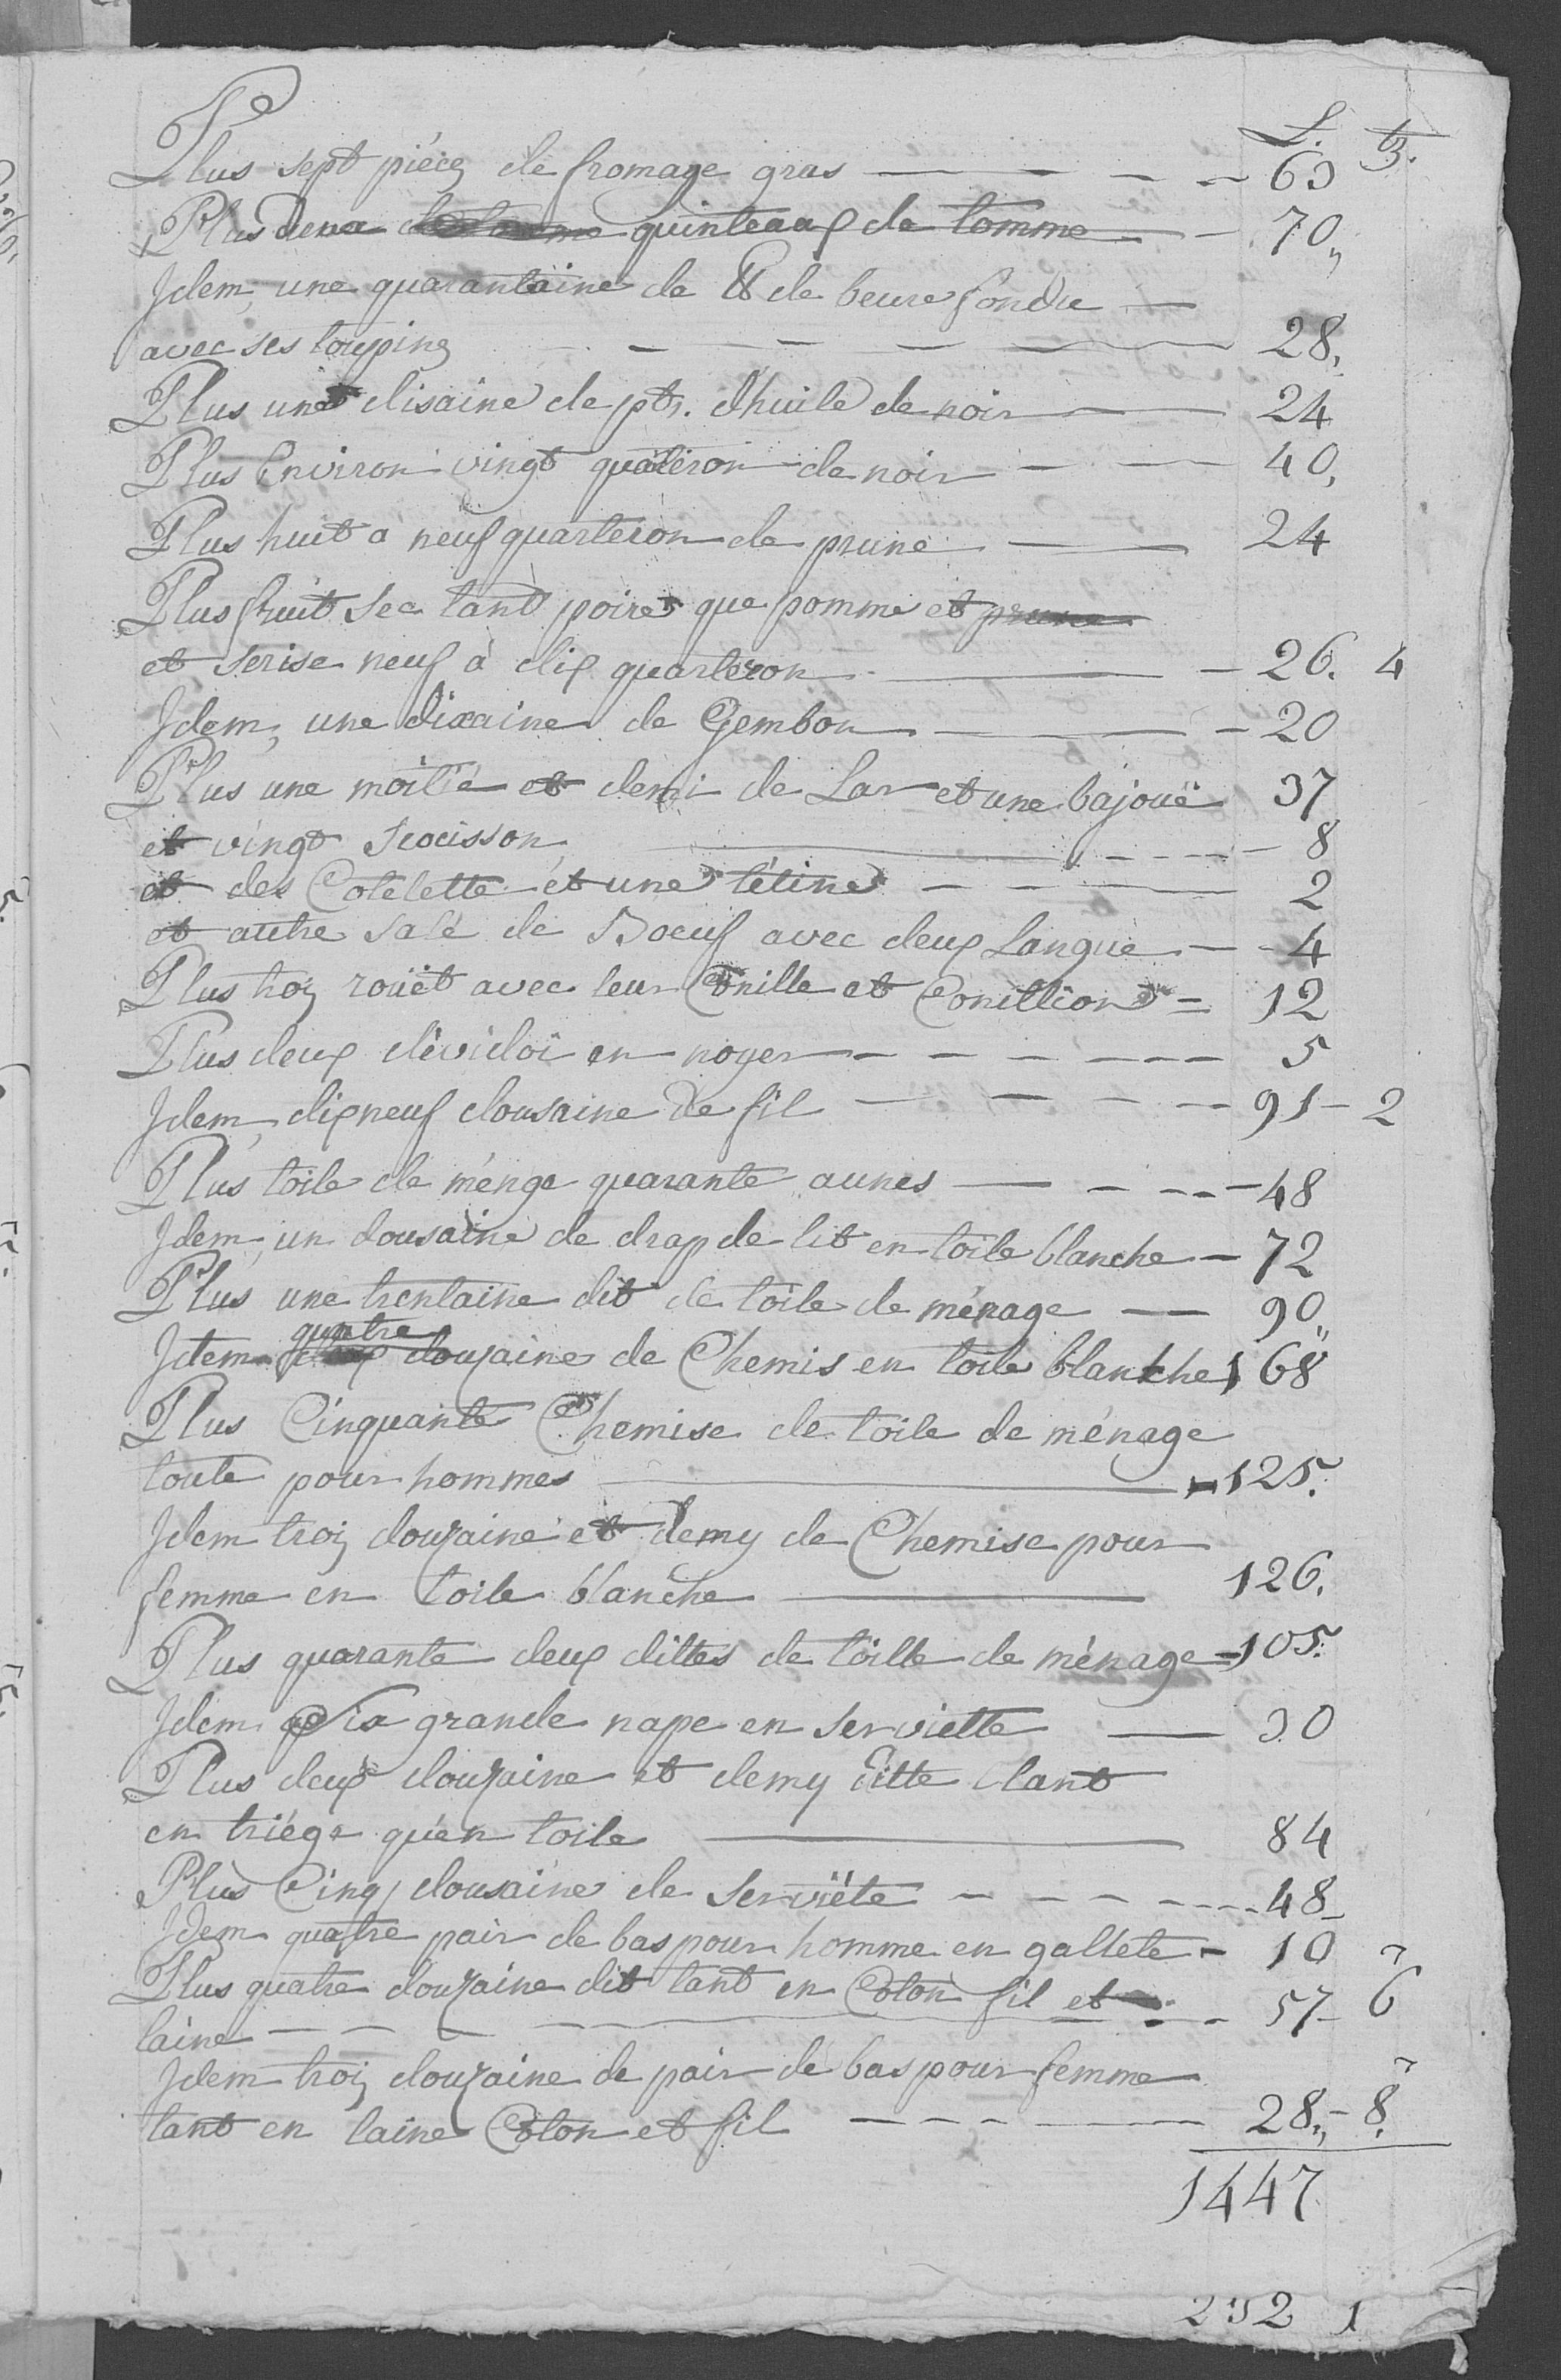 L. ß.
Plus sept piéces de fromage gras — — — 63
Plus Deux quinteaux de tomme — 70„
Jdem, une quarantaine de ℔ de beure fondue —
avec ses toupins — — — — 28,
Plus une disaine de pts. d'huile de noix — 24
Plus Environ vingt quateron de noix — — 40,
Plus huit a neuf quarteron de prune — 24
Plus fruit sec tant poire que pomme et prune
et serise neuf à dix quarteron — 26. 4
Jdem, une dixaine de Gembon — 20
Plus une moitié et demi de Lar et une bajouë 37
et vingt socisson — 8
et des Cotelette et une tétine — 2
et autre salé de Boeuf avec deux Langue — 4
Plus trois rouët avec leur Conille et Conillion = 12
Plus deux dévidoi en noyer — — — 5
Jdem, dixneuf dousaine de fil — — — 91 - 2
Plus toile de ménge quarante aunes — — 48
Jdem, un dousaine de drap de lit en toile blanche — 72
Plus une trentaine dit de toile de ménage — 90„
quatre
Jdem douzaine de Chemis en toile blanche 168
Plus Cinquante Chemise de toile de ménage
toute pour hommes — 125.
Jdem trois douzaine et demy de Chemise pour
femme en toile blanche — 126.
Plus quarante deux dittes de toille de ménage = 105.
Jdem Six grande nape en serviette — 30
Plus deux douzaine et demy ditte tant
en triége qu'en toile — 84
Plus Cinq dousaine de serviéte — — — 48
Jdem quatre pair de bas pour homme en galléte — 10
Plus quatre douzaine dit tant en Coton fil et 57 - 6
laine — — —
Jdem trois douzaine de pair de bas pour femme
tant en laine Coton et fil — — — 28„ - 8.
1447
232 1